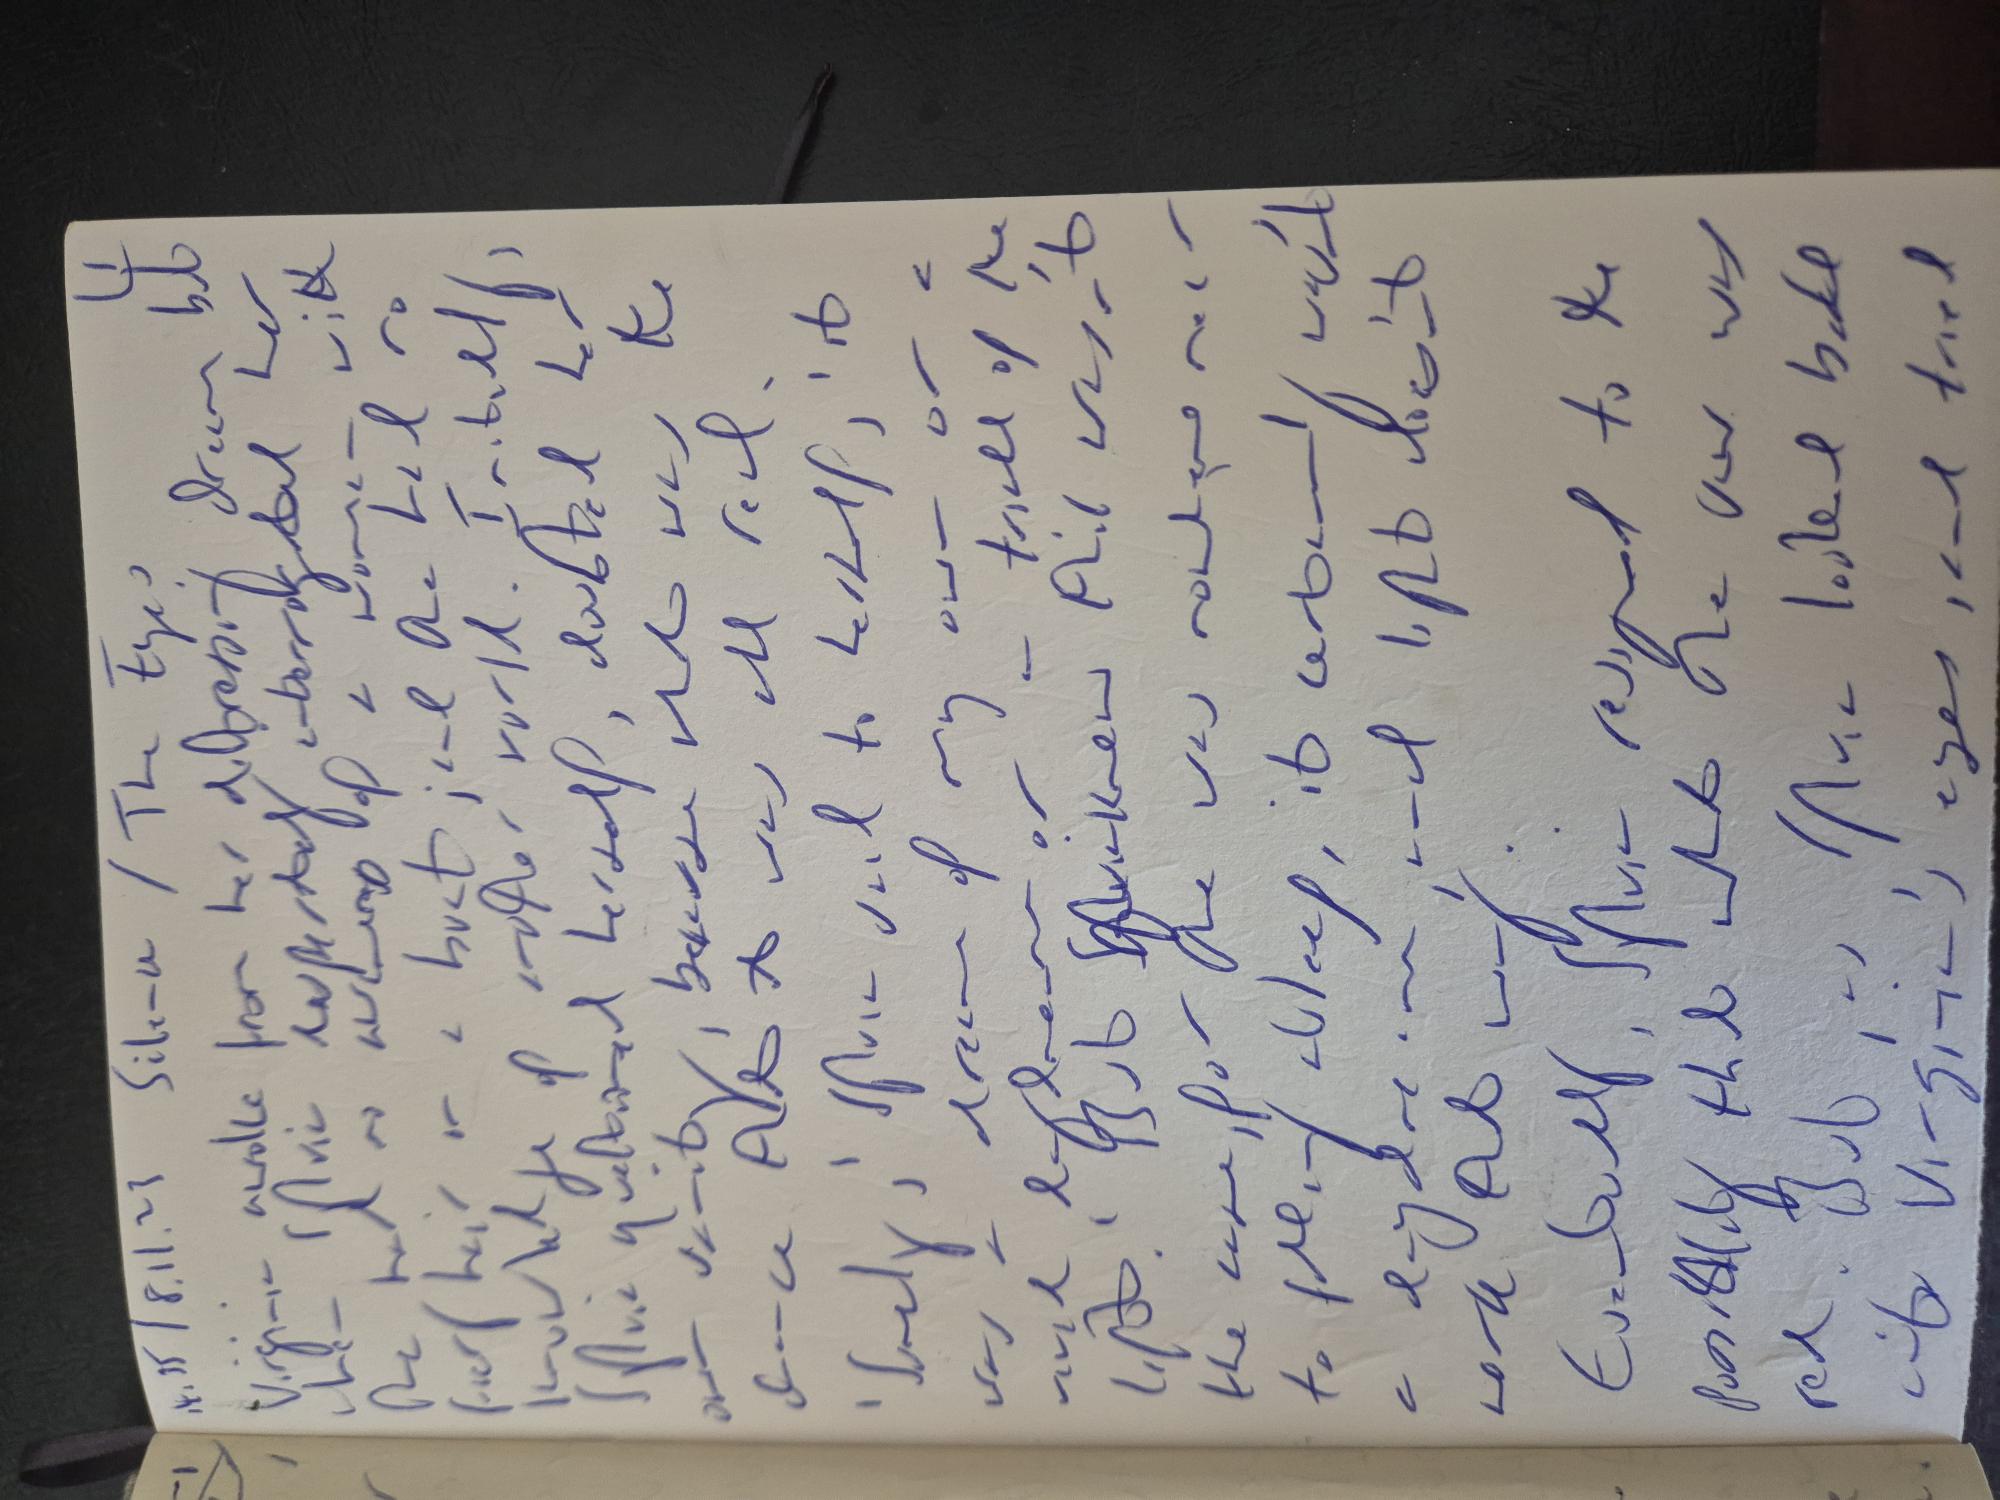 14.35 / 8.11.23 Silence / The Eyes 4
Virginia awoke from her distressing dream but
when Sylvia desperately interrogated her
she had no awareness of a woman with
hair in a boat, and she had no
knowledge of another world. Initially,
Sylvia questioned herself, doubted her
own sanity, because what was the
chance that it was all real.
'Surely,' Sylvia said to herself, 'it
was a dream of my own or a
vivid daydream or a trick of the
light.' But Sylvia knew this wasn't
the case, for she was nowhere near
to falling asleep, it certainly wasn't
a daydream, and light doesn't
work that way.
Eventually, Sylvia resigned to the
possibility that what she saw was
real. But, as Sylvia looked back
into Virginia's eyes, and tried